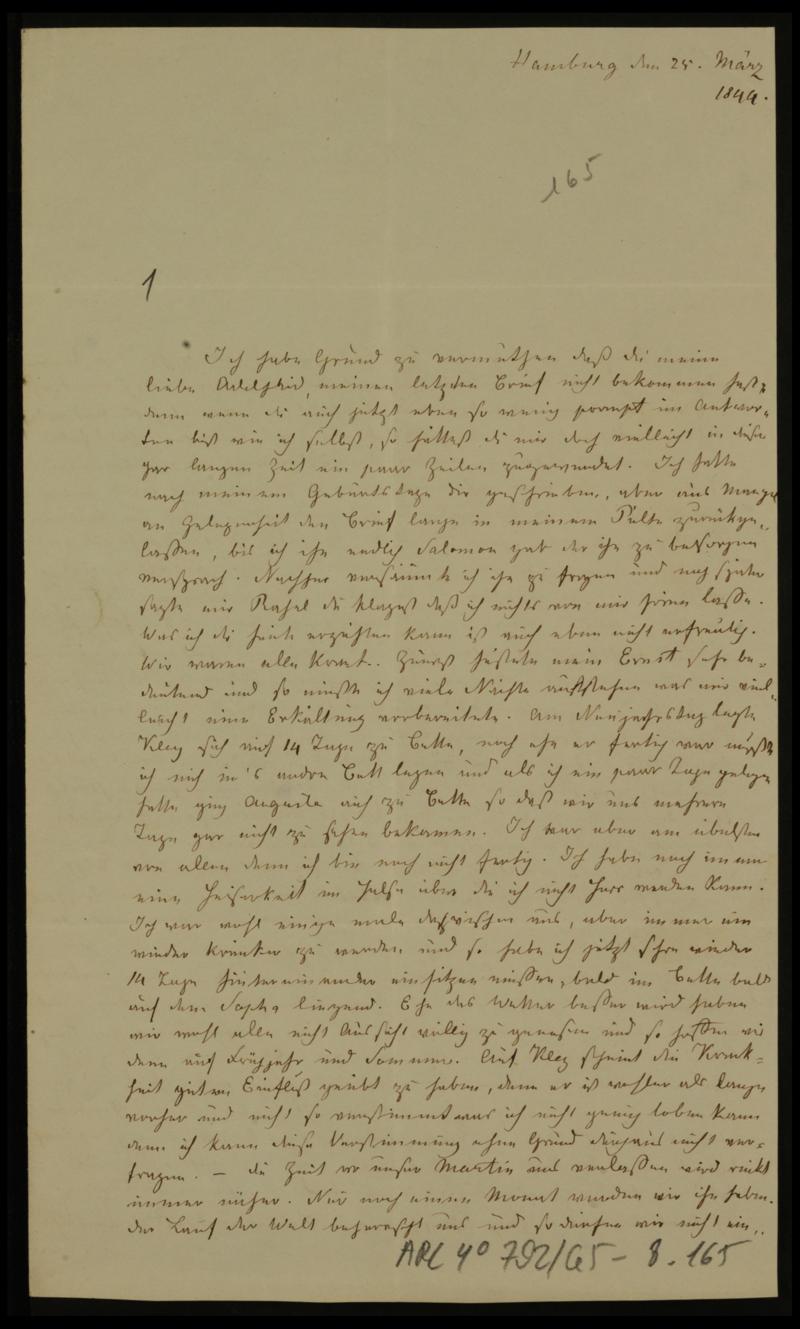 Hamburg den 25. März
1844.
165
1
Ich habe Grund zu vermuthen daß du meine
liebe Adelheid, meinen letzten Brief nicht bekommen hast,
denn wenn du auch jetzt eben so wenig prompt im Antwor-
ten bist wie ich selbst, so hättest du mir doch vielleicht in dieser
gar langen Zeit ein paar Zeilen zugewendet. Ich hatte
nach meinem Geburtstage dir geschrieben, aber aus Mangel
an Gelegenheit den Brief lange in meinem Pulte zurückge-
lassen, bis ich ihn endlich Salomon gab der ihn zu besorgen
versprach. Nachher versäumte ich ihn zu fragen und nach später
sagte mir Rahel du klagest daß ich nichts von mir hören lasse.
Was ich dir heute erzählen kann ist auch eben nicht erfreulich.
Wir waren alle krank. Zuerst hustete mein Ernst sehr be-
deutend und so mußte ich viele Nächte aufstehen was mir viel-
leicht eine Erkältung vorbereitete. Am Neujahrstag legte
Kley sich auf 14 Tage zu Bette, noch ehe er fertig war mußte
ich mich in's andre Bett legen und als ich ein paar Tage gelegen
hatte ging Auguste auch zu Bette so daß wir uns mehrere
Tage gar nicht zu sehen bekamen. Ich war aber am übelsten
von allen denn ich bin noch nicht fertig. Ich habe noch immer
eine Heiserkeit im Halse über die ich nicht Herr werden kann.
Ich war wohl einige male dazwischen aus, aber immer um
wieder kränker zu werden und so habe ich jetzt schon wieder
14 Tage hintereinander einsitzen müssen, bald im Bette bald
auf dem Sopha liegend. Ehe das Wetter besser wird haben
wir wohl alle nicht Aussicht völlig zu genesen und so hoffen wir
denn auf Frühjahr und Sommer. Auf Kley scheint die Krank-
heit guten Einfluß geübt zu haben, denn er ist wohler als lange
vorher und nicht so verstimmt was ich nicht genug loben kann
denn ich kann diese Verstimmung ohne Grund durchaus nicht ver-
tragen. – die Zeit wo unser Martin uns verlassen wird rückt
immer näher. Nur noch einen Monat werden wir ihn haben.
der Lauf der Welt beherrscht uns und so dürfen wir nicht ein-
ARC 4° 792/G5 - 8. 165